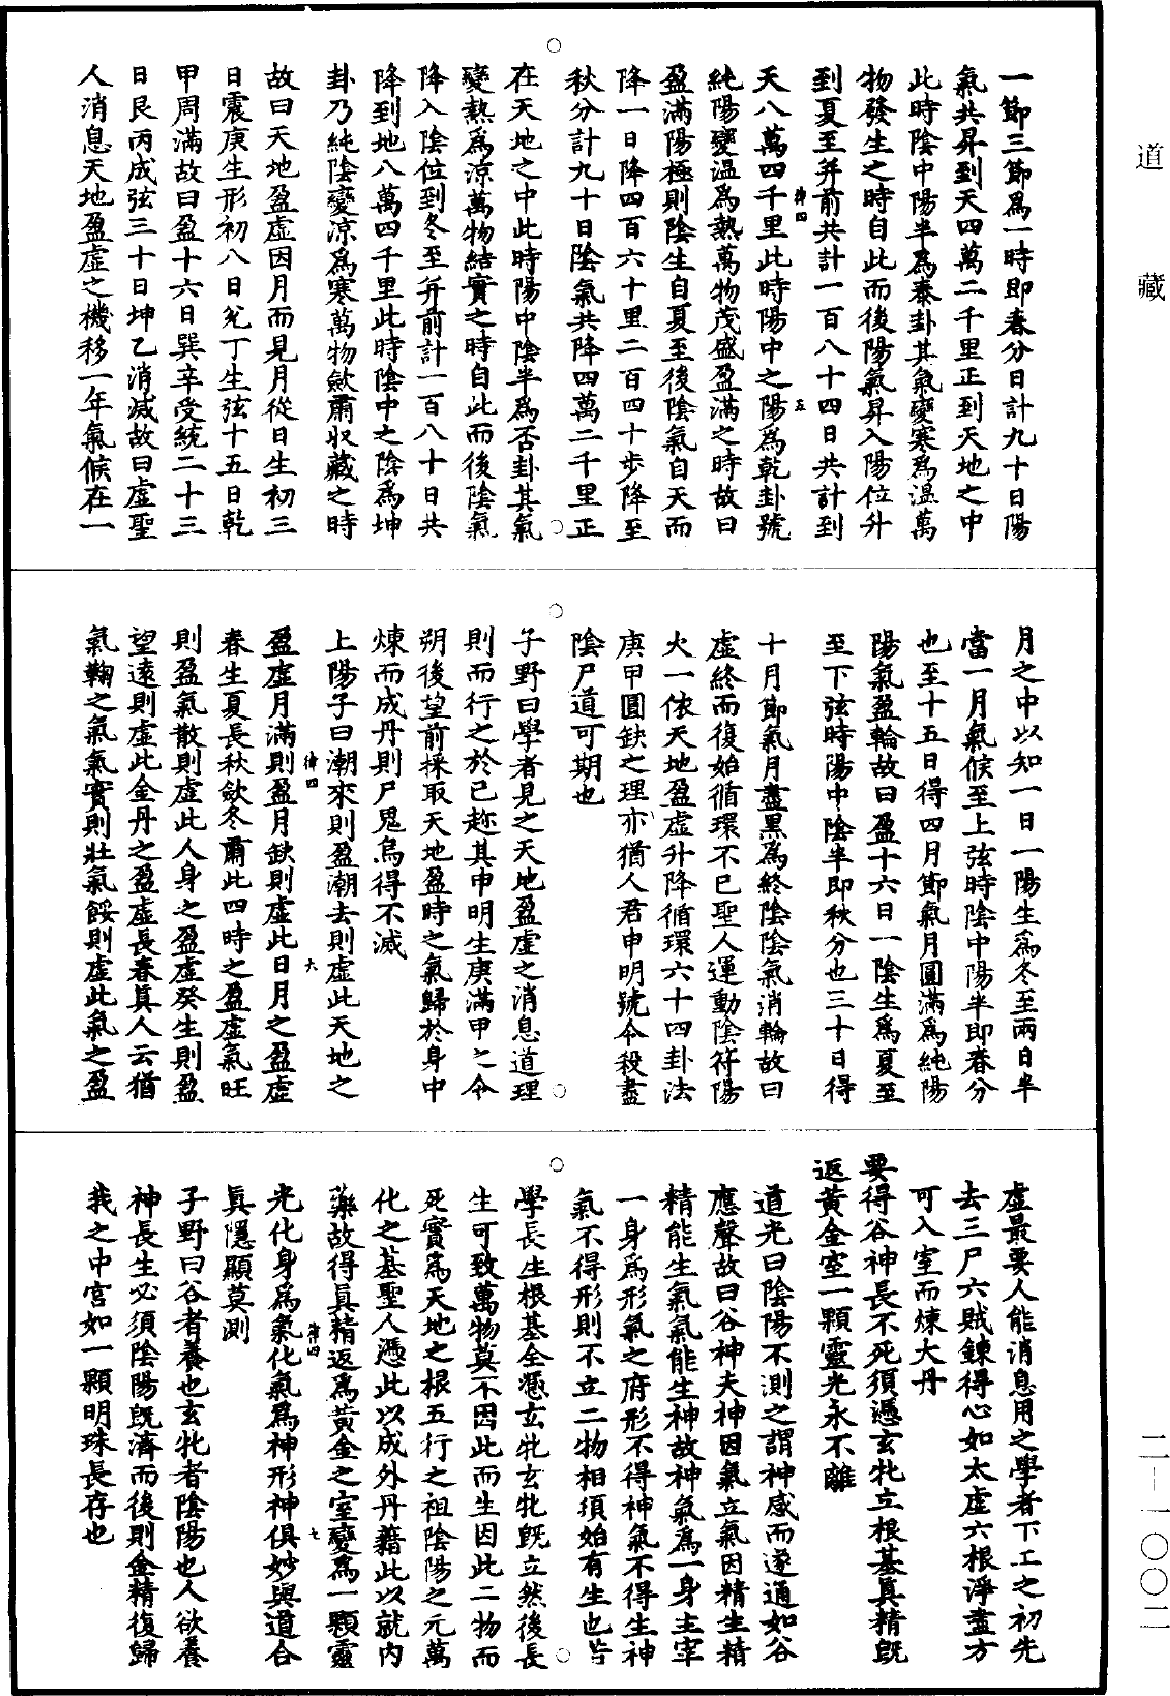 道藏
一節三節爲一時即春分日計九十日陽
氣共昇到天四萬二千里正到天地之中
此時陰中陽半爲泰卦其氣變寒爲溫萬
物發生之時自此而後陽氣昇入陽位升
到夏至并前共計一百八十四日共計到
律四 五
天八萬四千里此時陽中之陽爲乾卦號
純陽變溫爲熱萬物茂盛盈滿之時故曰
盈滿陽極則陰生自夏至後陰氣自天而
降一日降四百六十里二百四十步降至
秋分計九十日陰氣共降四萬二千里正
在天地之中此時陽中陰半爲否卦其氣
變熱爲涼萬物結實之時自此而後陰氣
降入陰位到冬至并前計一百八十日共
降到地八萬四千里此時陰中之陰爲坤
卦乃純陰變涼爲寒萬物歛肅收藏之時
故曰天地盈虛因月而見月從日生初三
日震庚生形初八日兊丁生弦十五日乾
甲周滿故曰盈十六日巽辛受統二十三
日艮丙成弦三十日坤乙消減故曰虛聖
人消息天地盈虛之機移一年氣候在一
月之中以知一日一陽生爲冬至兩日半
當一月氣候至上弦時陰中陽半即春分
也至十五日得四月節氣月圓滿爲純陽
陽氣盈輪故曰盈十六日一陰生爲夏至
至下弦時陽中陰半即秋分也三十日得
十月節氣月盡黑爲終陰陰氣消輪故曰
虛終而復始循環不已聖人運動陰符陽
火一依天地盈虛升降循環六十四卦法
庚甲圓缺之理亦猶人君申明號令殺盡
陰尸道可期也
子野曰學者見之天地盈虛之消息道理
則而行之於己趂其申明生庚滿甲之令
朔後望前採取天地盈時之氣歸於身中
煉而成丹則尸鬼烏得不滅
上陽子曰潮來則盈潮去則虛此天地之
律四 六
盈虛月滿則盈月缺則虛此日月之盈虛
春生夏長秋歛冬肅此四時之盈虛氣旺
則盈氣散則虛此人身之盈虛癸生則盈
望遠則虛此金丹之盈虛長春眞人云猶
氣鞠之氣氣實則壯氣餒則虛此氣之盈
虛最要人能消息用之學者下工之初先
去三尸六賊鍊得心如太虛六根淨盡方
可入室而煉大丹
要得谷神長不死須憑玄牝立根基眞精旣
返黃金室一顆靈光永不離
道光曰陰陽不測之謂神感而遂通如谷
應聲故曰谷神夫神因氣立氣因精生精
精能生氣氣能生神故神氣爲一身主宰
一身爲形氣之府形不得神氣不得生神
氣不得形則不立二物相須始有生也皆
學長生根基全憑玄牝玄牝旣立然後長
生可致萬物莫不因此而生因此二物而
死實爲天地之根五行之祖陰陽之元萬
化之基聖人憑此以成外丹藉此以就內
藥故得眞精返爲黃金之室變爲一顆靈
律四 七
光化身爲氣化氣爲神形神俱妙與道合
眞隱顯莫測
子野曰谷者養也玄牝者陰陽也人欲養
神長生必須陰陽旣濟而後則金精復歸
我之中宮如一顆明珠長存也
二-一〇〇二